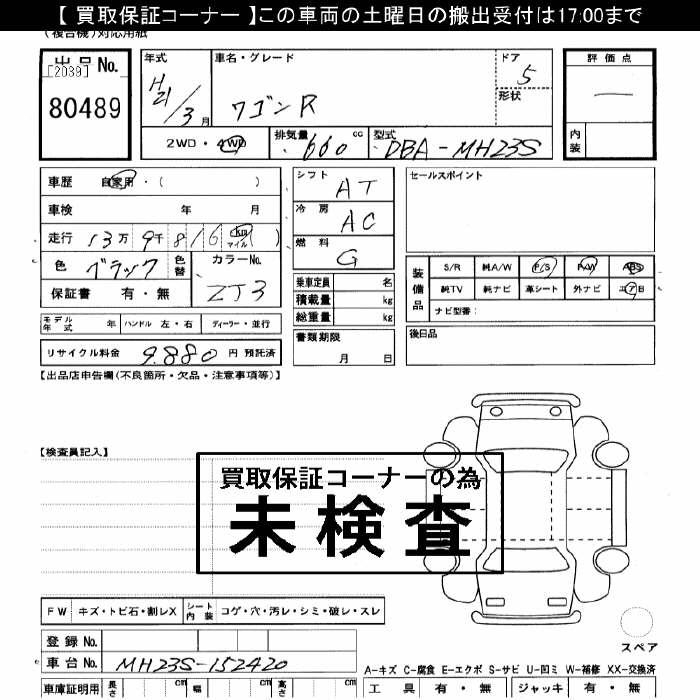 【 買取保証コーナー 】この車両の土曜日の搬出受付は17:00まで
(複合機)対応用紙
出品No.
[2039]
80489
年式
H21/3月
車名・グレード
ワゴンR
ドア
5
形状
評価点
内装
2WD・4WD
排気量
660 cc
型式
DBA-MH23S
車歴 自家用・( )
車検 年 月
走行 13万 9千 816 km マイル ( )
色 ブラック
色替
カラーNo.
ZJ3
保証書 有・無
シフト
AT
冷房
AC
燃料
G
乗車定員 名
積載量 kg
総重量 kg
セールスポイント
装備品
S/R 純A/W P/S P/W ABS
純TV 純ナビ 革シート 外ナビ エアB
ナビ型番:
モデル年式 年 ハンドル 左・右 ディーラー・並行
リサイクル料金 9,880 円 預託済
書類期限
月 日
後日品
【出品店申告欄(不良箇所・欠品・注意事項等)】
【検査員記入】
買取保証コーナーの為
未検査
FW キズ・トビ石・割レX シート内装 コゲ・穴・汚レ・シミ・破レ・スレ
登録No.
車台No. MH23S-152420
車庫証明用 長さ cm 幅 cm 高さ cm
スペア
A-キズ C-腐食 E-エクボ S-サビ U-凹ミ W-補修 XX-交換済
工具 有・無 ジャッキ 有・無